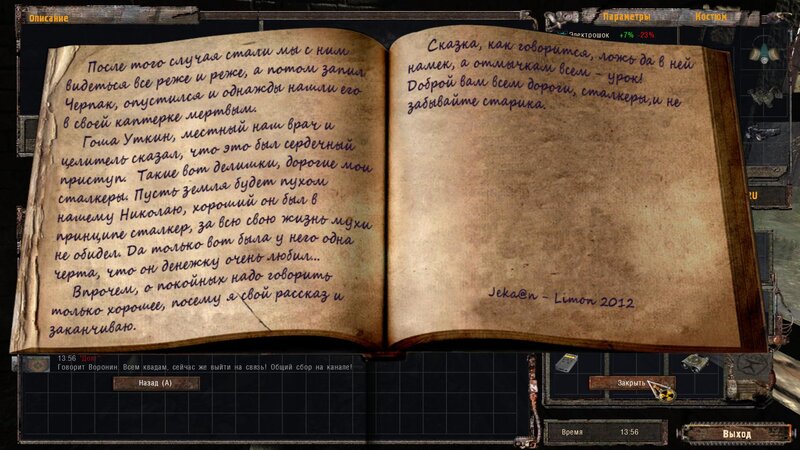 Описание
Параметры
Костюм
Электрошок +7% -23%
После того случая стали мы с ним
видеться все реже и реже, а потом запил
Черпак, опустился и однажды нашли его
в своей каптерке мертвым.
Гоша Уткин, местный наш врач и
целитель сказал, что это был сердечный
приступ. Такие вот делишки, дорогие мои
сталкеры. Пусть земля будет пухом
нашему Николаю, хороший он был в
принципе сталкер, за всю свою жизнь мухи
не обидел. Да только вот была у него одна
черта, что он денежку очень любил...
Впрочем, о покойных надо говорить
только хорошее, посему я свой рассказ и
заканчиваю.
Сказка, как говорится, ложь да в ней
намек, а отмычкам всем - урок!
Доброй вам всем дороги, сталкеры,и не
забывайте старика.
Jeka@n - Limon 2012
RU
13:56 "Долг"
Говорит Воронин. Всем квадам, сейчас же выйти на связь! Общий сбор на канале!
Назад (A)
Закрыть
Время 13:56
Выход